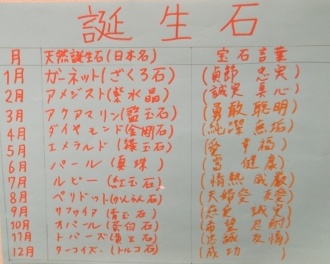 誕生石
月 天然誕生石(日本名) 宝石言葉
1月 ガーネット(ざくろ石) (貞節 忠実)
2月 アメジスト(紫水晶) (誠実 真心)
3月 アクアマリン(藍玉石) (勇敢 聡明)
4月 ダイヤモンド(金剛石) (純潔 無垢)
5月 エメラルド(緑玉石) (愛 幸福)
6月 パール(真珠) (富 健康)
7月 ルビー(紅玉石) (情熱 威厳)
8月 ペリドット(かんらん石) (夫婦愛
9月 サファイア(青玉石) (
10月 オパール(蛋白石) (希望 忍耐)
11月 トパーズ(黄玉石) (忠誠 友情)
12月 ターコイズ(トルコ石) (成功)